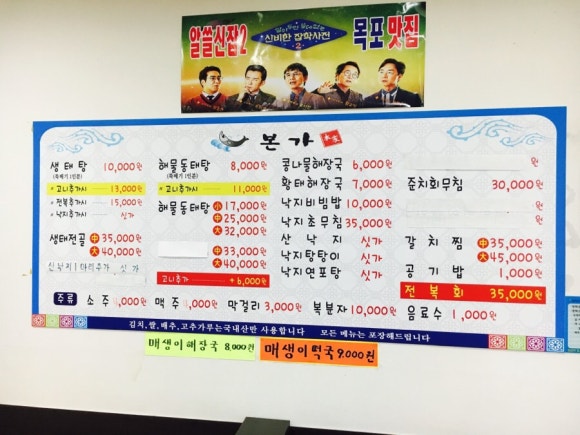 알쓸신잡2 신비한 잡학사전 2 목포 맛집
본가
생태탕 10,000원
(뚝배기 1인분)
* 고니추가시 13,000원
* 전복추가시 15,000원
* 낙지추가시 싯가
생태전골 中 35,000원
大 40,000원
산낙지 1마리추가 싯가
해물동태탕 8,000원
(뚝배기 1인분)
* 고니추가시 11,000원
해물동태탕 小 17,000원
中 25,000원
大 32,000원
中 33,000원
大 40,000원
고니추가 +6,000원
콩나물해장국 6,000원
황태해장국 7,000원
낙지비빔밥 10,000원
낙지초무침 35,000원
산낙지 싯가
낙지탕탕이 싯가
낙지연포탕 싯가
원
준치회무침 30,000원
원
갈치찜 中 35,000원
大 45,000원
공기밥 1,000원
전복회 35,000원
주류 소주 4,000원 맥주 4,000원 막걸리 3,000원 복분자 10,000원 음료수 1,000원
김치,쌀,배추,고추가루는국내산만 사용합니다 모든 메뉴는 포장해드립니다
매생이해장국 8,000원
매생이떡국 9,000원